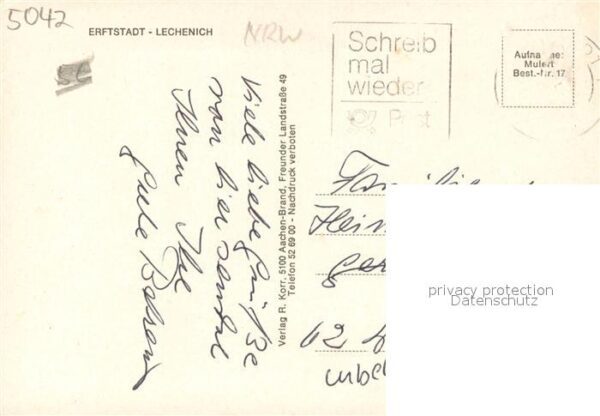 5042
ERFTSTADT - LECHENICH
NRW
Schreib
mal
wieder
Post
Aufnahme:
Mulert
Best.-Nr. 17
Viele liebe Grüße
von hier sendet
Ihnen Ihre
Verlag R. Korr, 5100 Aachen-Brand, Freunder Landstraße 49
Telefon 52 69 00 - Nachdruck verboten
Familie
Hein
62
privacy protection
Datenschutz